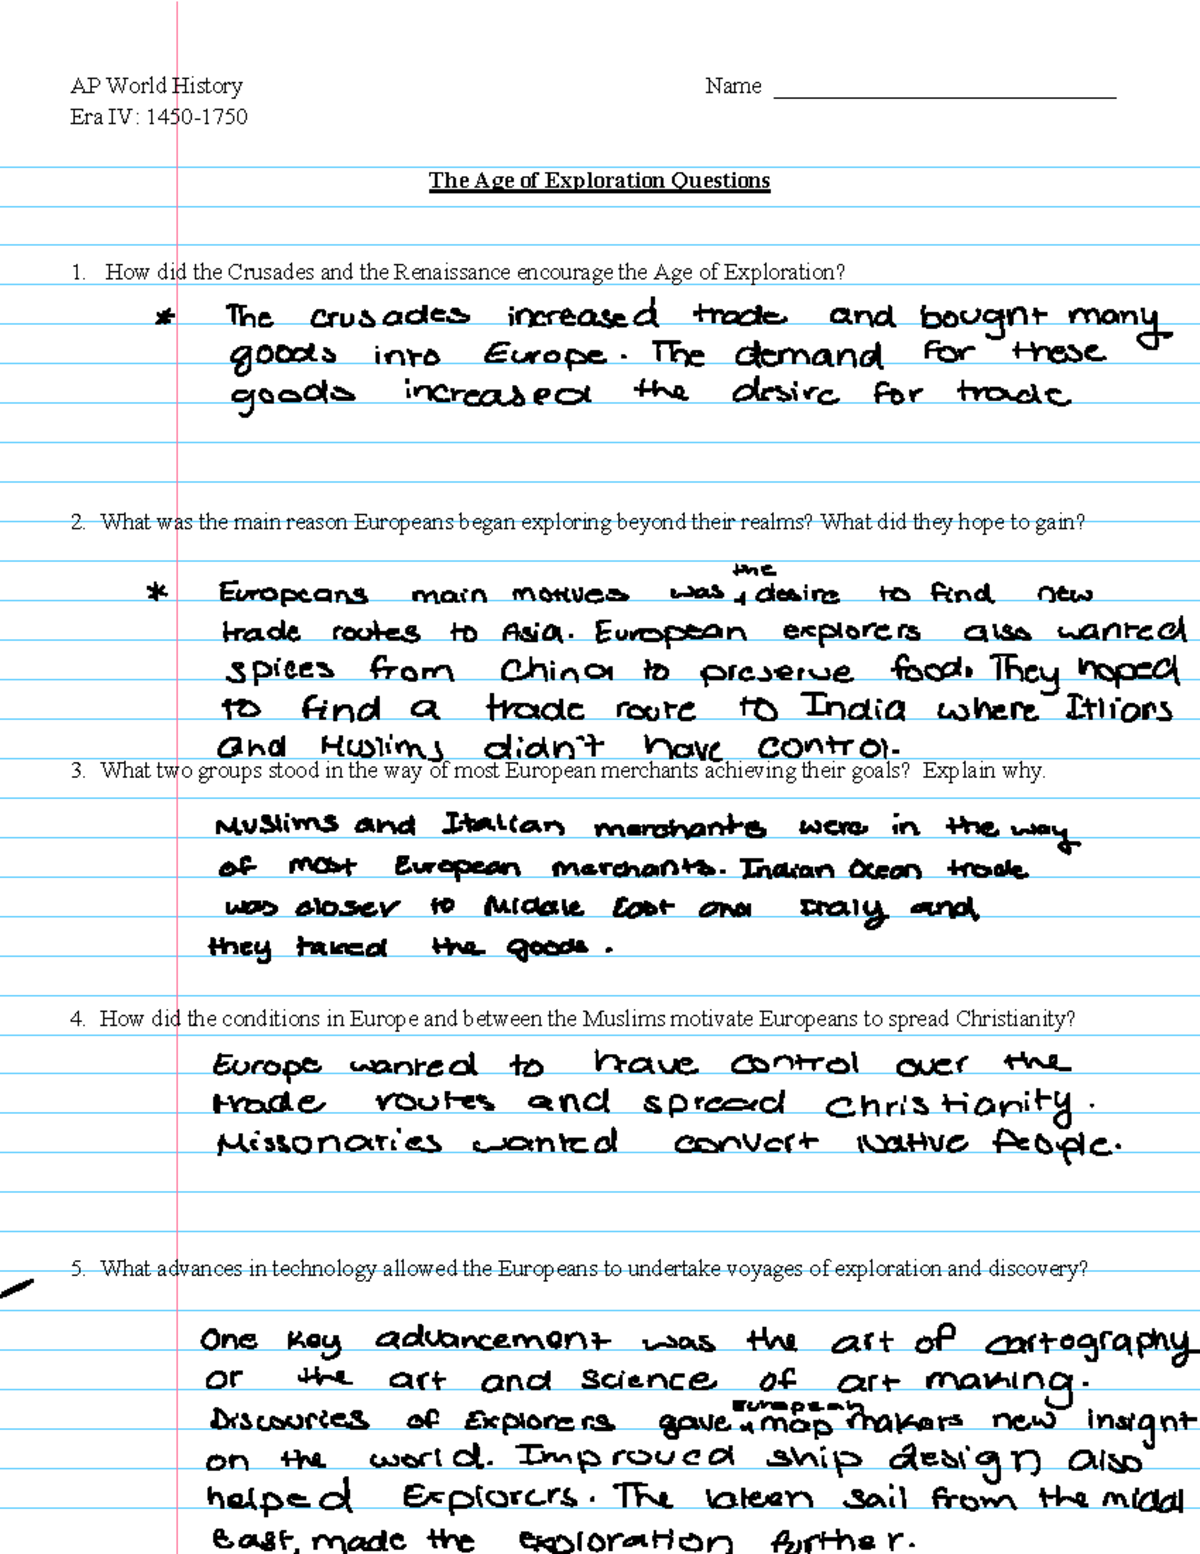 AP World History Name
Era IV: 1450-1750
The Age of Exploration Questions
1. How did the Crusades and the Renaissance encourage the Age of Exploration?
* The crusades increased trade and bought many
goods into Europe. The demand for these
goods increased the desire for trade
2. What was the main reason Europeans began exploring beyond their realms? What did they hope to gain?
the
* Europeans main motives was desire to find new
trade routes to Asia. European explorers also wanted
spices from China to preserve food. They hoped
to find a trade route to India where Itlions
and Muslims didn't have control.
3. What two groups stood in the way of most European merchants achieving their goals? Explain why.
Muslims and Italian merchants were in the way
of most European merchants. Indian Ocean trade
was closer to Middle East and Italy and
they the goods.
4. How did the conditions in Europe and between the Muslims motivate Europeans to spread Christianity?
Europe wanted to have control over the
trade routes and spread Christianity.
Missonaries wanted convert Native People.
5. What advances in technology allowed the Europeans to undertake voyages of exploration and discovery?
One Key advancement was the art of cartography
or the art and science of art making.
European
Discouries of Explorers gave map makers new insight
on the world. Improved ship design also
helped Explorers. The lateen sail from the midd
East, made the exploration further.